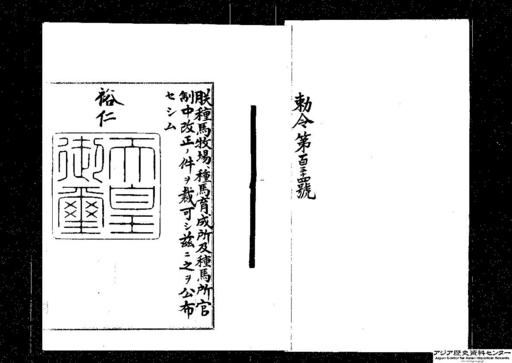 勅令第百三四號
朕種馬牧場、種馬育成所及種馬所官
制中改正ノ件ヲ裁可シ茲ニ之ヲ公布
セシム
裕仁
天皇
御璽
アジア歴史資料センター
Japan Center for Asian Historical Records